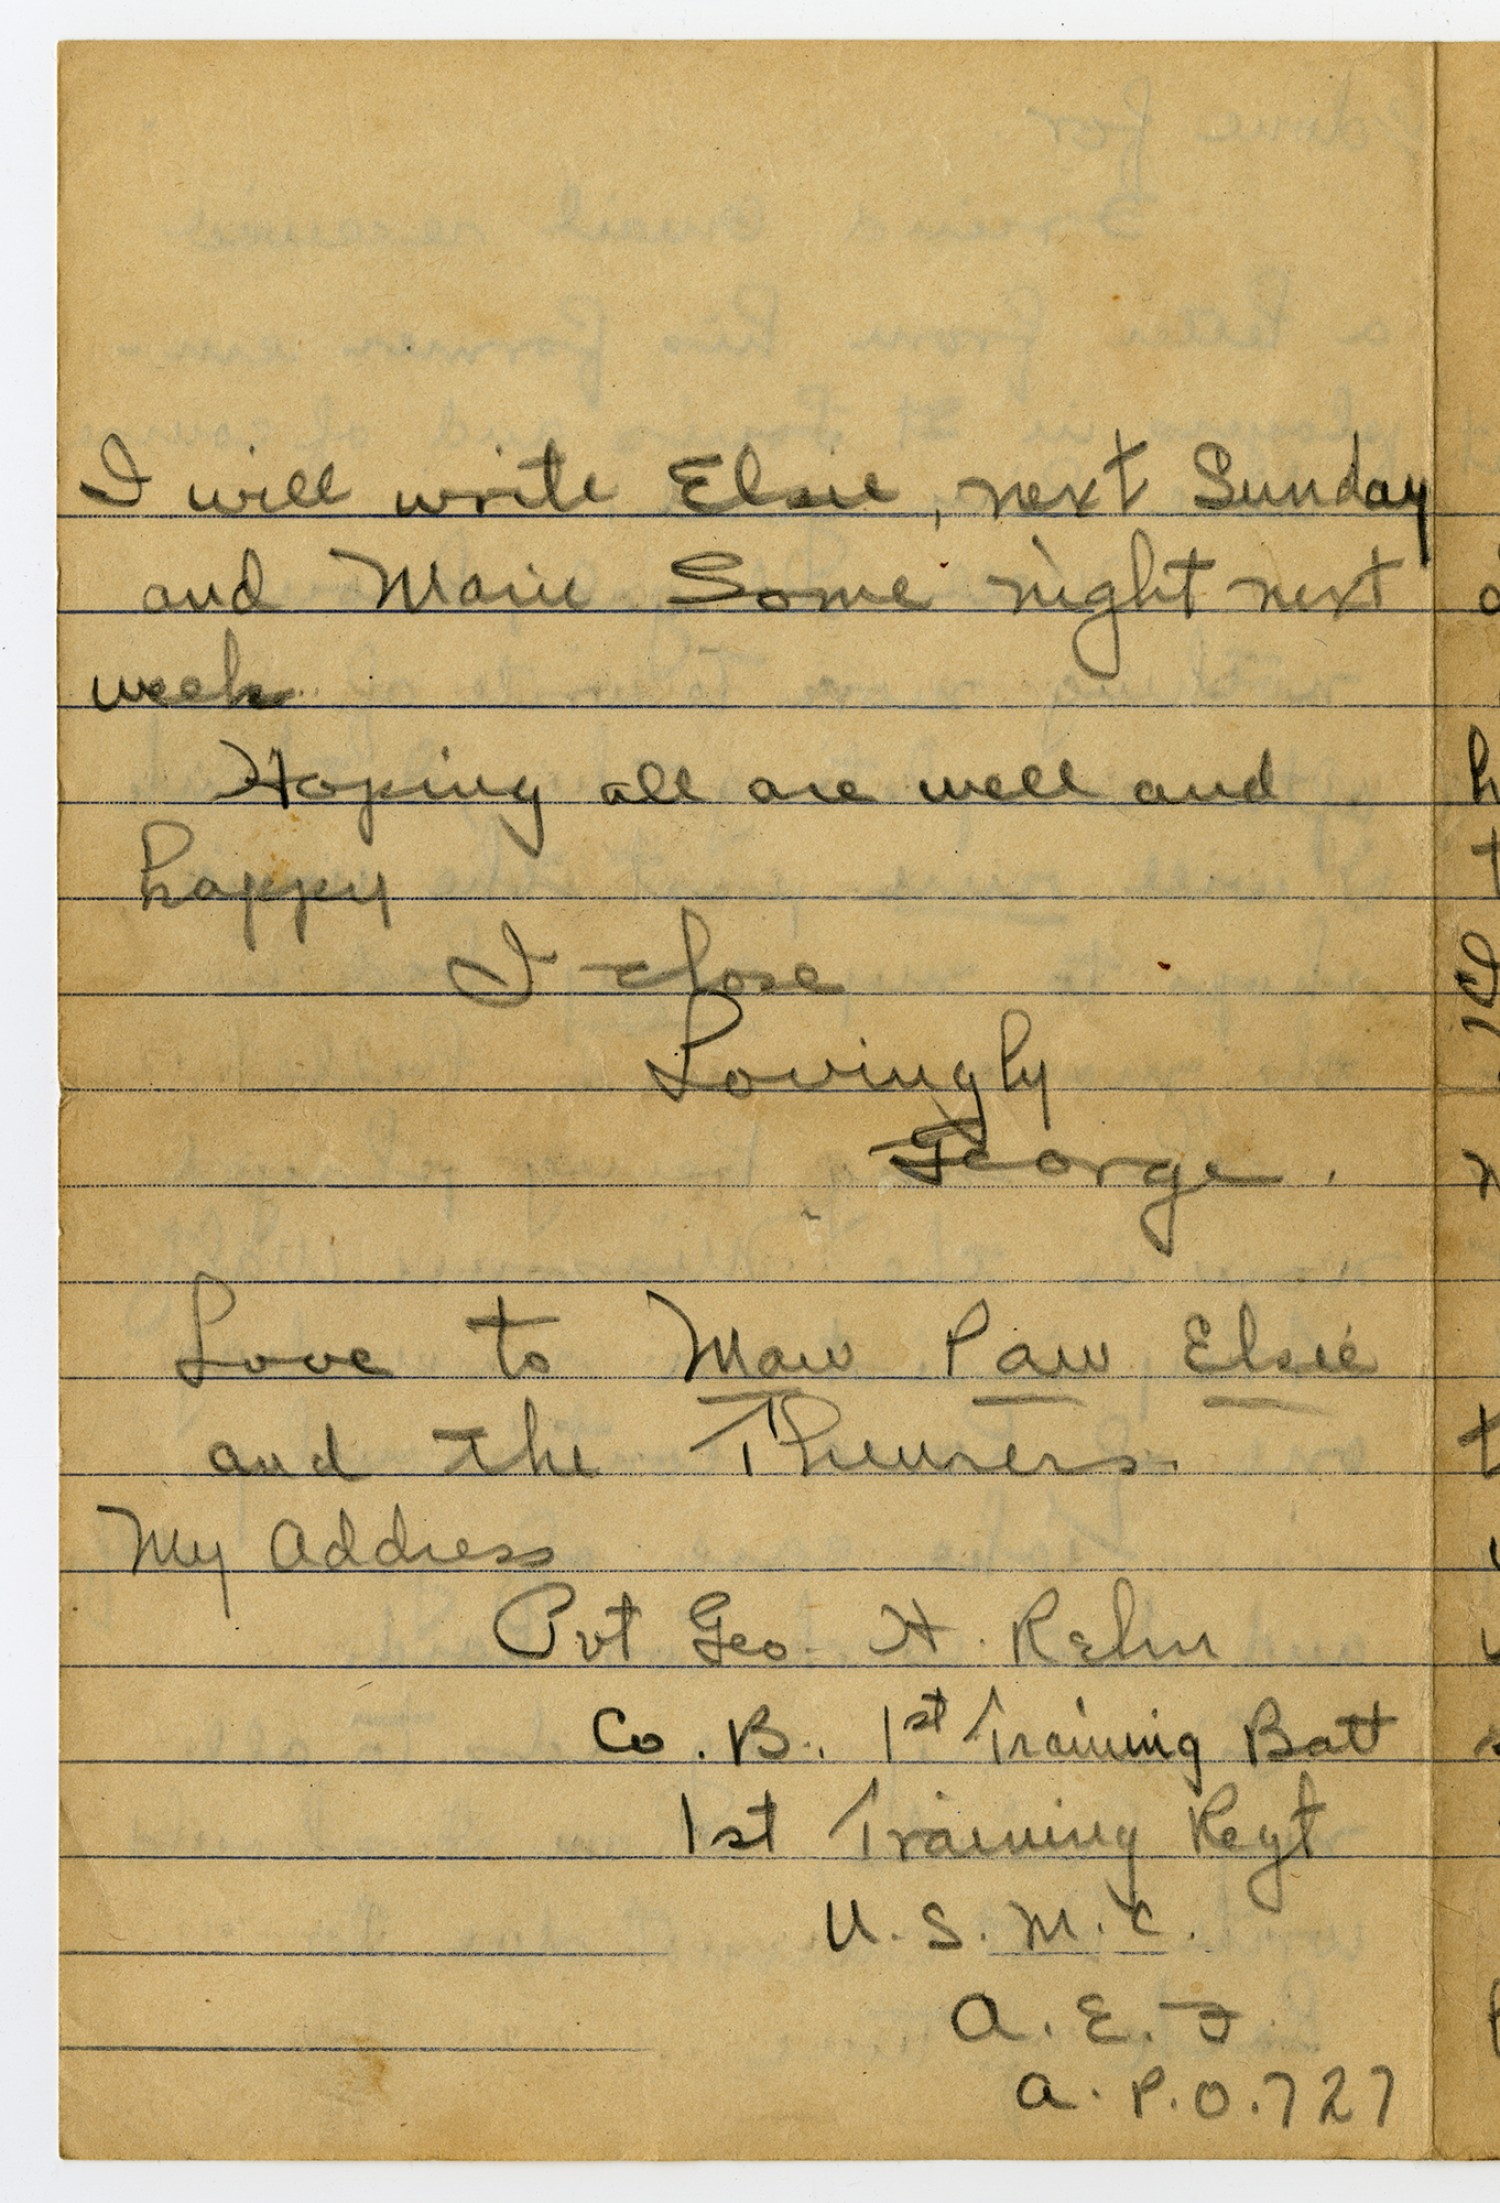 I will write Elsie, next Sunday
and Marie Some night next
week.
Hoping all are well and
happy
I close
Lovingly
George.
Love to Maw Paw Elsie
and the Theurers.
My Address
Pvt Geo. H. Rehm
Co. B. 1st Training Batt
1st Training Regt
U. S. M. C.
A. E. F.
A. P. O. 727